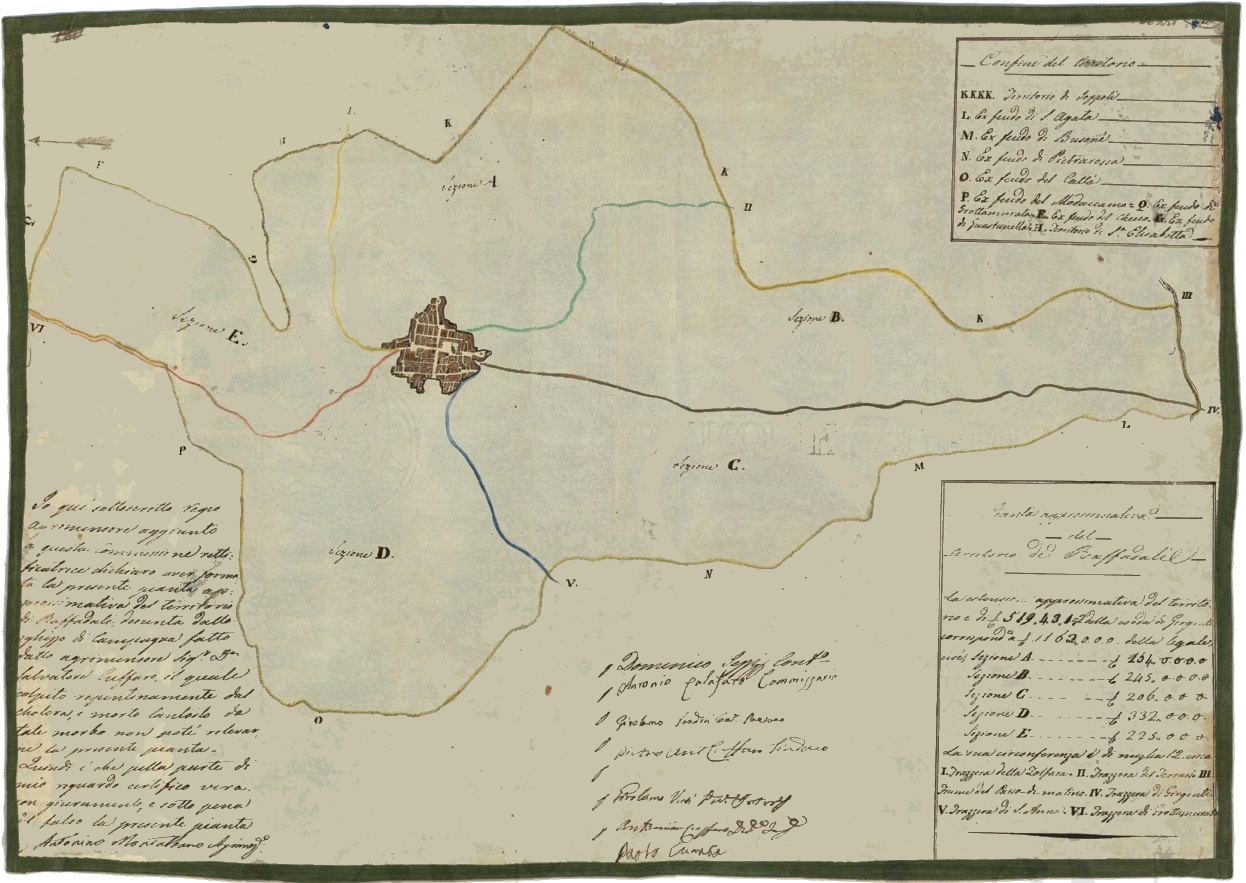 Confini del territorio
K.K.K.K. Territorio di Joppolo
L. Ex feudo di S. Agata
M. Ex feudo di Buonè
N. Ex feudo di Pietrarossa
O. Ex feudo del Cattà
P. Ex feudo del Modaccamo = Q. Ex feudo di
Grottamurata = F. Ex feudo del
G. Ex feudo
di Guastanella = H. Territorio di S.ta Elisabetta
I.
K
H
F
G
Sezione A
K
II
Sezione E.
Sezione B.
K
III
VI
IV.
L
M
P
Sezione C.
Sezione D.
V.
N
O
Io quì sottoscritto regio
agrimensore aggiunto
a questa commissione retti:
ficatrice dichiaro aver forma
ta la presente pianta ap:
prossimativa del territorio
di Raffadale, desunta dallo
di campagna fatto
dallo agrimensore Sig.r D.n
Salvatore il quale
colpito repentinamente dal
cholera, e morto
tale morbo non poté rilevar
ne la presente pianta.
Quindi è che pella parte di
mio riguardo certifico vera
con giuramento, e sotto pena
di falso la presente pianta
Antonino Montalbano Agrim.
Domenico
Antonio Calafato Commissario
Girolamo
Pietro
Girolamo
Antonino
Paolo
Pianta approssimativa
del
territorio di Raffadale
La approssimativa del territo
rio è di £ 519.4.3.1.2 della corda di Girgenti
£ 1162.0.0.0 della legale,
cioè Sezione A £ 154.0.0.0.0
Sezione B £ 245.0.0.0.0
Sezione C £ 206.0.0.0
Sezione D £ 332.0.0.0
Sezione E £ 225.0.0.0
La sua circonferenza è di miglia 12. circa
I. Trazzera della Zolfara - II. Trazzera del Terrati III
Fiume del Passo di matrice. IV. Trazzera di Girgenti
V. Trazzera di S. Anna - VI. Trazzera di Grottamurata